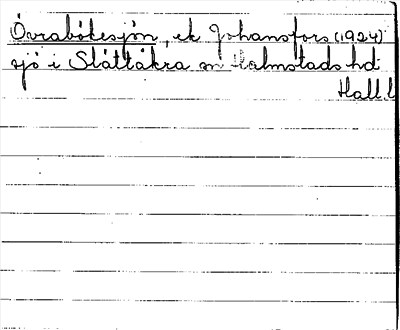 Övrabökesjön, ek Johansfors (1924)
sjö i Slättåkra sn Halmstads hd
Hall l